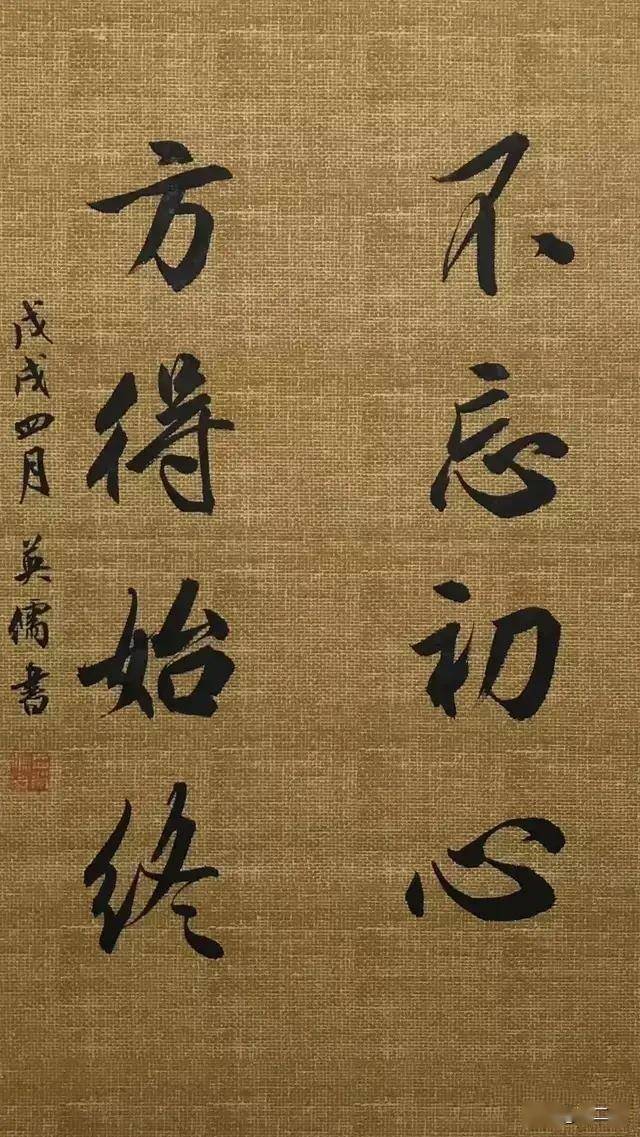 不忘初心
方得始终
戊戌四月英儒书